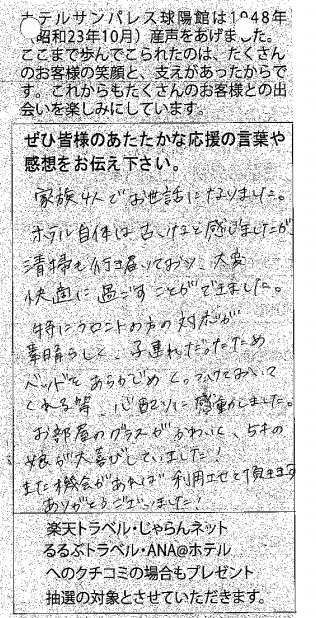 ホテルサンパレス球陽館は1948年
（昭和23年10月）産声をあげました。
ここまで歩んでこられたのは、たくさん
のお客様の笑顔と、支えがあったからで
す。これからもたくさんのお客様との出
会いを楽しみにしています。
ぜひ皆様のあたたかな応援の言葉や
感想をお伝え下さい。
家族4人でお世話になりました。
ホテル自体は古いかなと感じましたが
清掃も行き届いており、大変
快適に過ごすことができました。
特にフロントの方の対応が
素晴らしく、子連れだったため
ベッドをあらかじめくっつけておいて
くれる等、心配りに感動しました。
お部屋のグラスがかわいく、5才の
娘が大喜びしていました！
また機会があれば利用させて頂きます
ありがとうございました！
楽天トラベル・じゃらんネット
るるぶトラベル・ANA@ホテル
へのクチコミの場合もプレゼント
抽選の対象とさせていただきます。